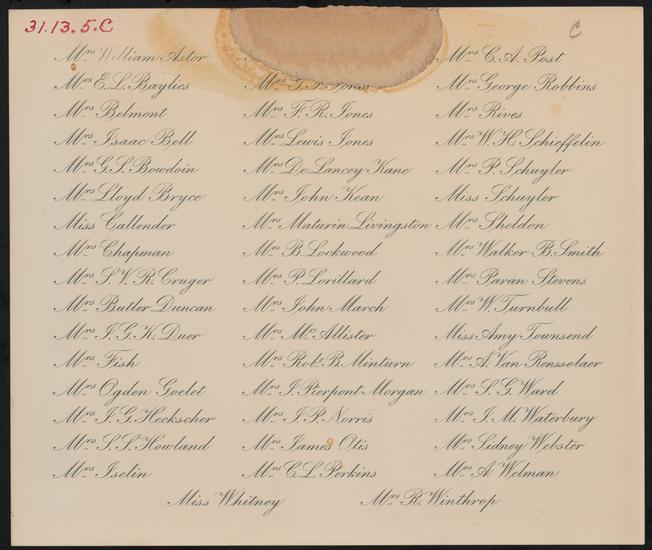 31.13.5.C
C
Mrs William Astor
Mrs E. L. Baylies
Mrs Belmont
Mrs Isaac Bell
Mrs G. S. Bowdoin
Mrs Lloyd Bryce
Miss Callender
Mrs Chapman
Mrs S. V. R. Cruger
Mrs Butler Duncan
Mrs J. G. K. Duer
Mrs Fish
Mrs Ogden Goelet
Mrs J. G. Heckscher
Mrs S. S. Howland
Mrs Iselin
Mrs Jones
Mrs F. R. Jones
Mrs Lewis Jones
Mrs De Lancey Kane
Mrs John Kean
Mrs Maturin Livingston
Mrs B. Lockwood
Mrs P. Lorillard
Mrs John March
Mrs Mc Allister
Mrs Robt. B. Minturn
Mrs J. Pierpont Morgan
Mrs J. P. Norris
Mrs James Otis
Mrs C. L. Perkins
Mrs C. A. Post
Mrs George Robbins
Mrs Rives
Mrs W. H. Schieffelin
Mrs P. Schuyler
Miss Schuyler
Mrs Sheldon
Mrs Walker B. Smith
Mrs Paran Stevens
Mrs W. Turnbull
Miss Amy Townsend
Mrs A. Van Rensselaer
Mrs S. G. Ward
Mrs J. M. Waterbury
Mrs Sidney Webster
Mrs A. Welman
Miss Whitney
Mrs R. Winthrop